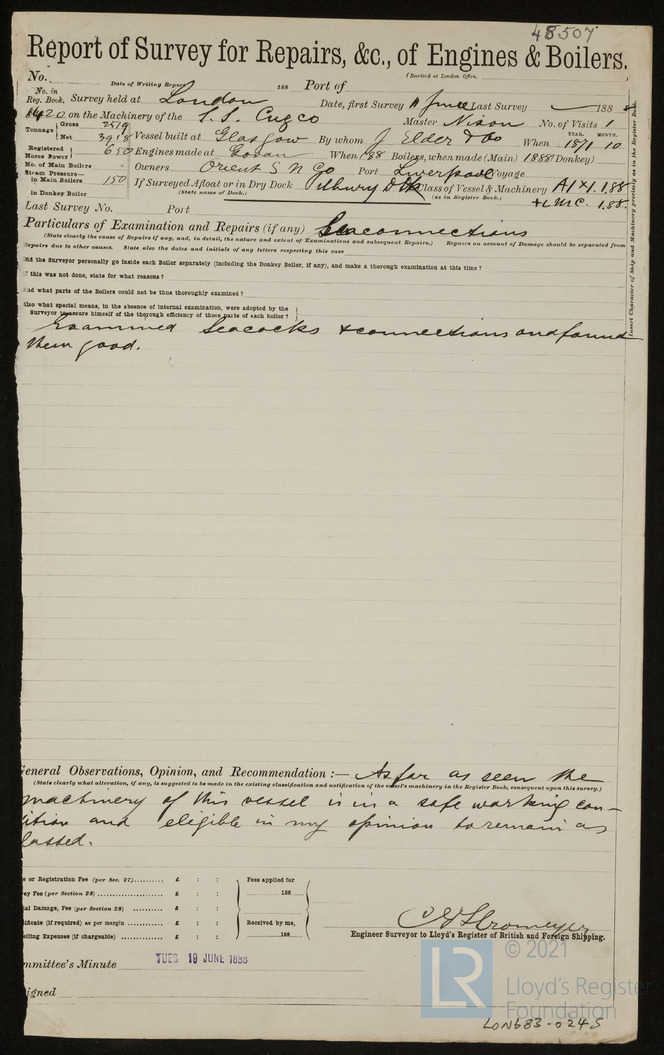 48507
Report of Survey for Repairs, &c., of Engines & Boilers.
(Received at London Office,
No. Date of Writing Report 188 Port of
No. in Reg. Book. Survey held at London Date, first Survey June Last Survey 188
420 on the Machinery of the S.S. Cuzco Master Nixon No. of Visits 1
Tonnage { Gross Net 3918 Vessel built at Glasgow By whom J. Elder & Co When 1871 YEAR. MONTH. 10
Registered Horse Power } 650 Engines made at Govan When 88 Boilers, when made (Main) 1888 (Donkey)
No. of Main Boilers Owners Orient S N Co Port Liverpool Voyage
Steam Pressure— in Main Boilers 150 If Surveyed Afloat or in Dry Dock Tilbury Dk Class of Vessel & Machinery A1 1,88
in Donkey Boiler (State name of Dock.) (as in Register Book.) + L.M.C. 1.88.
Last Survey No. Port
Insert Character of Ship and Machinery precisely as in the Register Book.
Particulars of Examination and Repairs (if any) Seaconnections
(State clearly the cause of Repairs if any, and, in detail, the nature and extent of Examinations and subsequent Repairs.) Repairs on account of Damage should be separated from
Repairs due to other causes. State also the dates and initials of any letters respecting this case
Did the Surveyor personally go inside each Boiler separately (including the Donkey Boiler, if any), and make a thorough examination at this time?
If this was not done, state for what reasons?
And what parts of the Boilers could not be thoroughly examined?
Also what special means, in the absence of internal examination, were adopted by the
Surveyor to assure himself of the thorough efficiency of those parts of each boiler?
Examined Seacocks & connections and found
them good.
General Observations, Opinion, and Recommendation :— As far as seen the
(State clearly what alteration, if any, is suggested to be made in the existing classification and notification of the vessel's machinery in the Register Book, consequent upon this survey.)
machinery of this vessel is in a safe working con-
ition and eligible in my opinion to remain as
lassed.
e or Registration Fee (per Sec. 27) £ : : Fees applied for
ey Fee (per Section 28) £ : : 188
ial Damage, Fee (per Section 28) £ : :
tificate (if required) as per margin £ : : Received by me,
elling Expenses (if chargeable) £ : : 188
C E Stromeyer
Engineer Surveyor to Lloyd's Register of British and Foreign Shipping.
ommittee's Minute TUES 19 JUNE 1888
igned
LR © 2021
Lloyd's Register
Foundation
LON683-0245